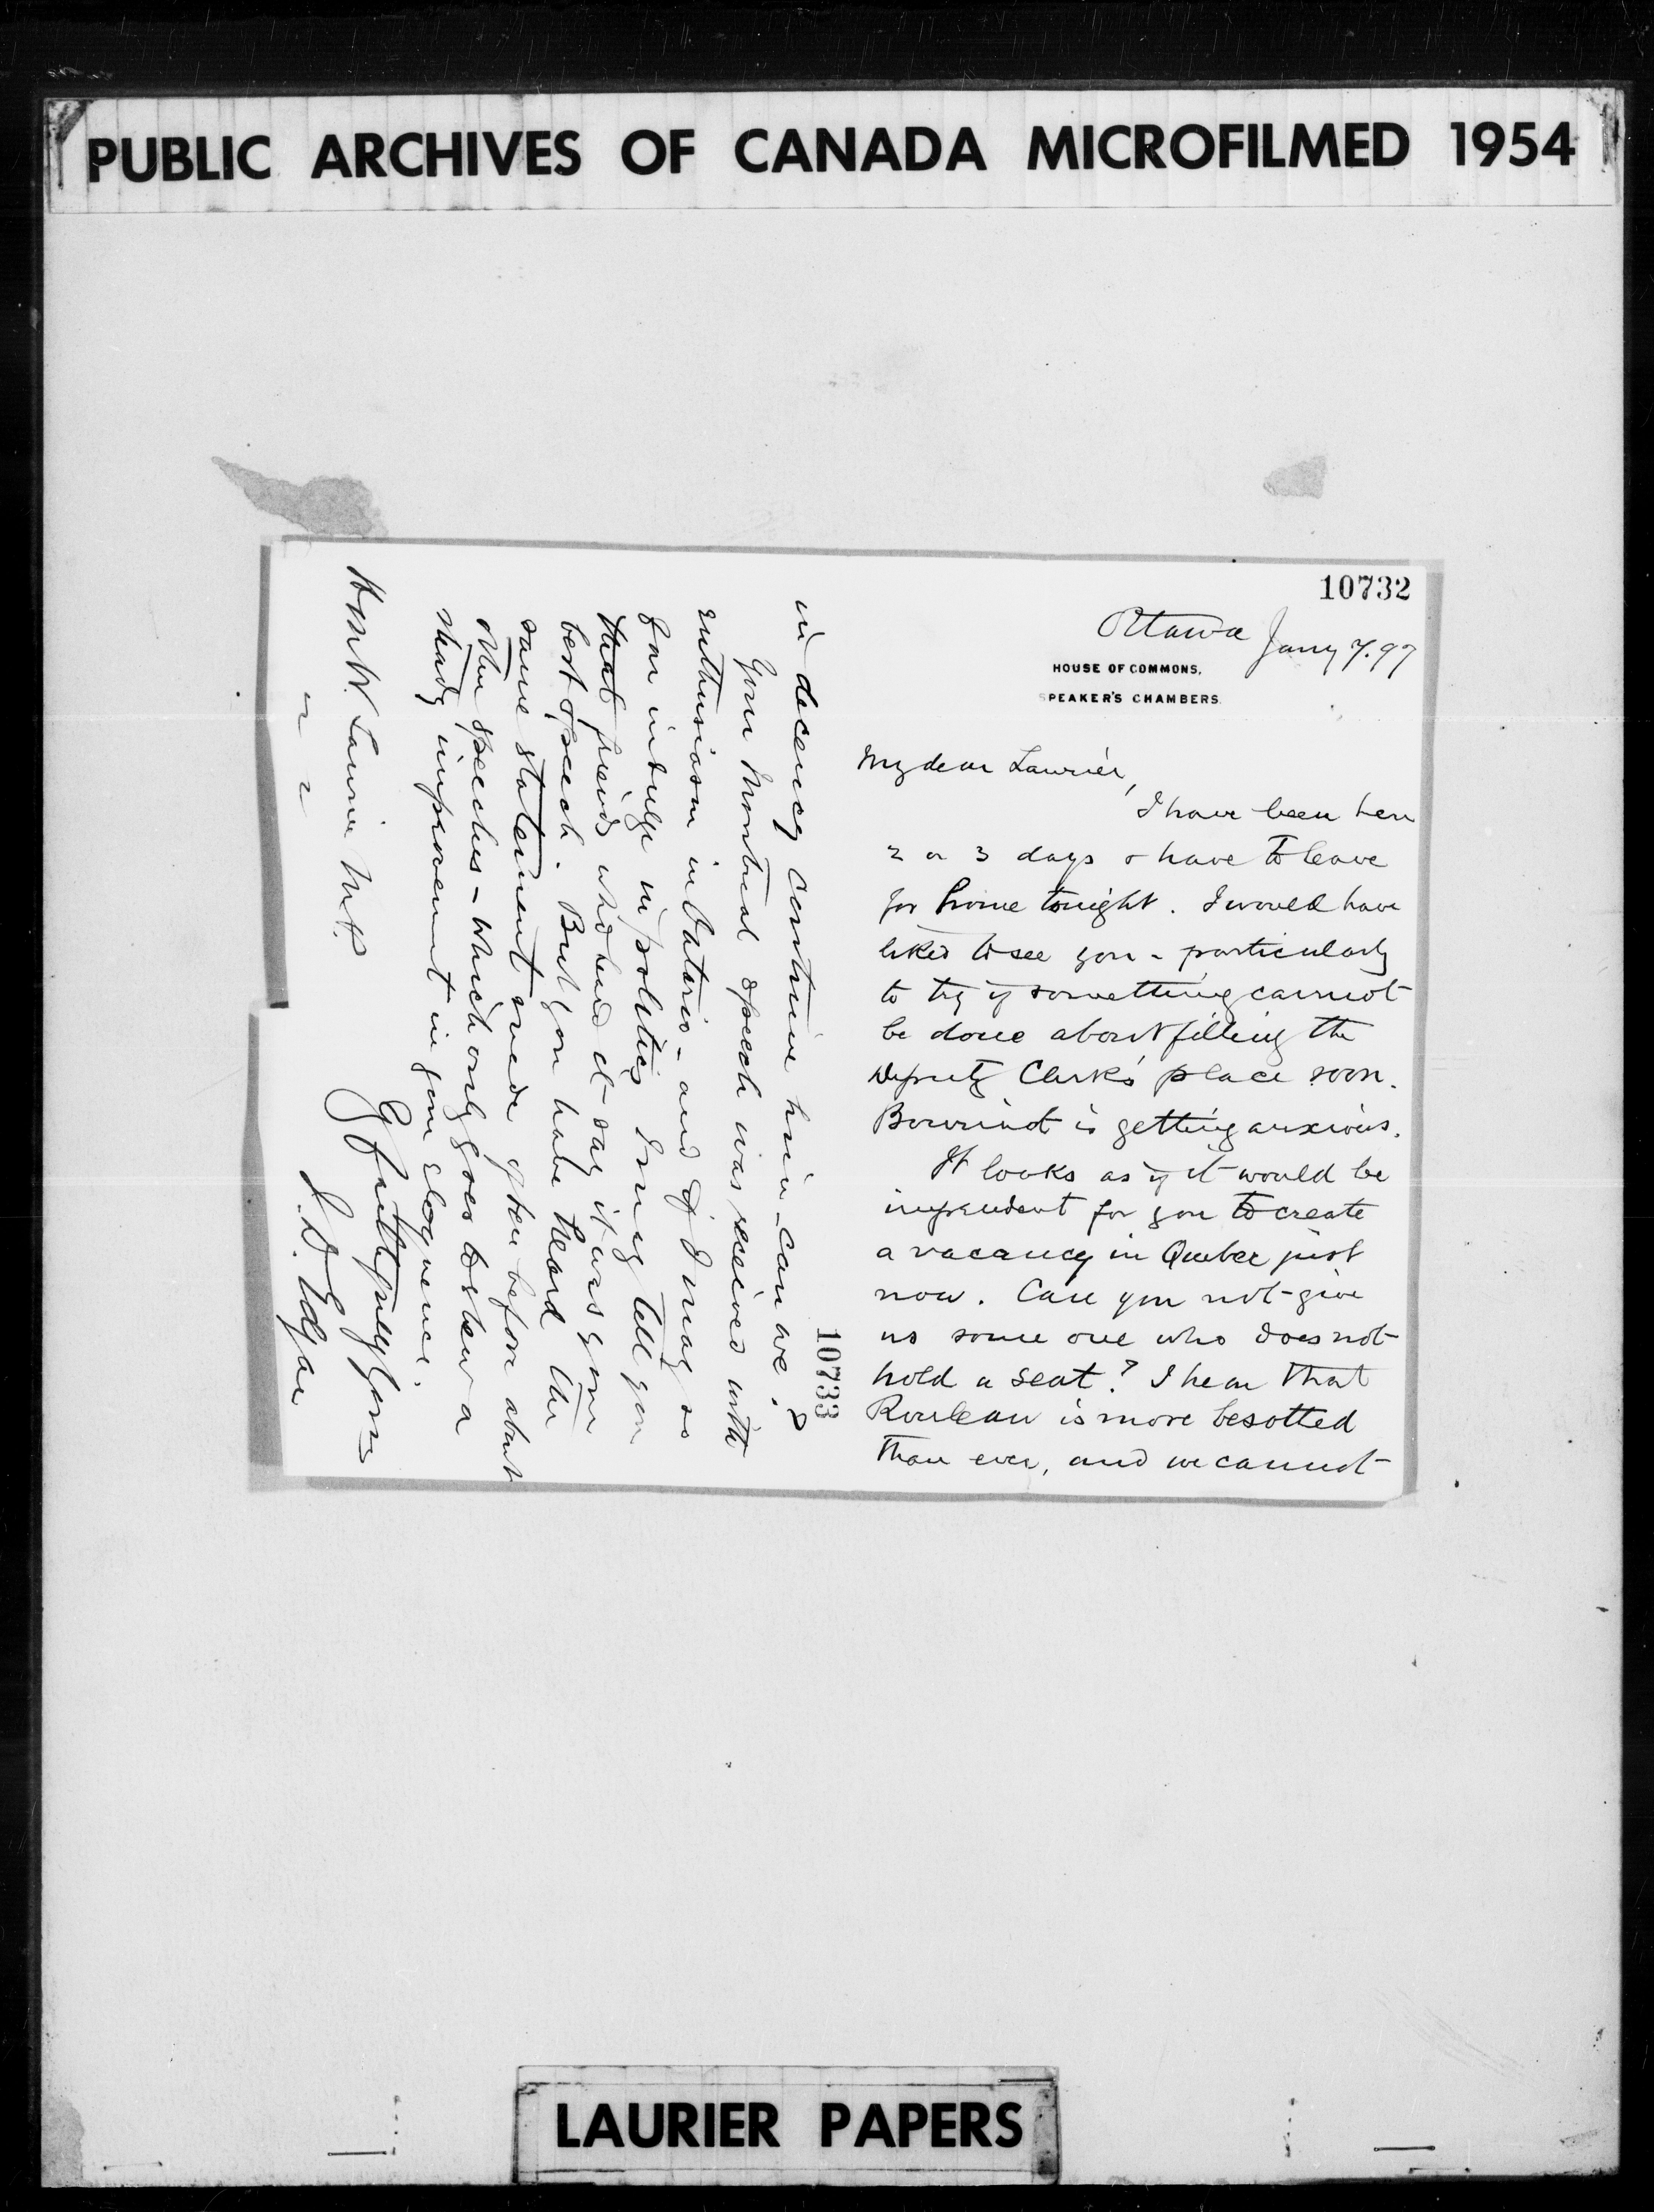 PUBLIC ARCHIVES OF CANADA MICROFILMED 1954
10732
Ottawa Jany 7.97
HOUSE OF COMMONS.
SPEAKER'S CHAMBERS
My dear Laurier,
I have been here
2 or 3 days & have to leave
for home tonight. I would have
liked to see you - particularly
to try if something cannot
be done about filling the
Deputy Clerk's place soon.
Bourinot is getting anxious.
It looks as if it would be
imprudent for you to create
a vacancy in Quebec just
now. Can you not give
us some one who does not
hold a seat? I hear that
Rouleau is more besotted
than ever, and we cannot
10733
in decency continue him - can we?
Your Montreal speech was received with
enthusiasm in Ontario - and if I may so
far indulge in politics I may tell you
that friends who heard it say it was your
best speech. But you have heard the
same statement made often before about
other speeches - which only goes to shew a
steady improvement in your eloquence.
Yr faithfully yours
J. D. Edgar
Hon W. Laurier M.P.
LAURIER PAPERS